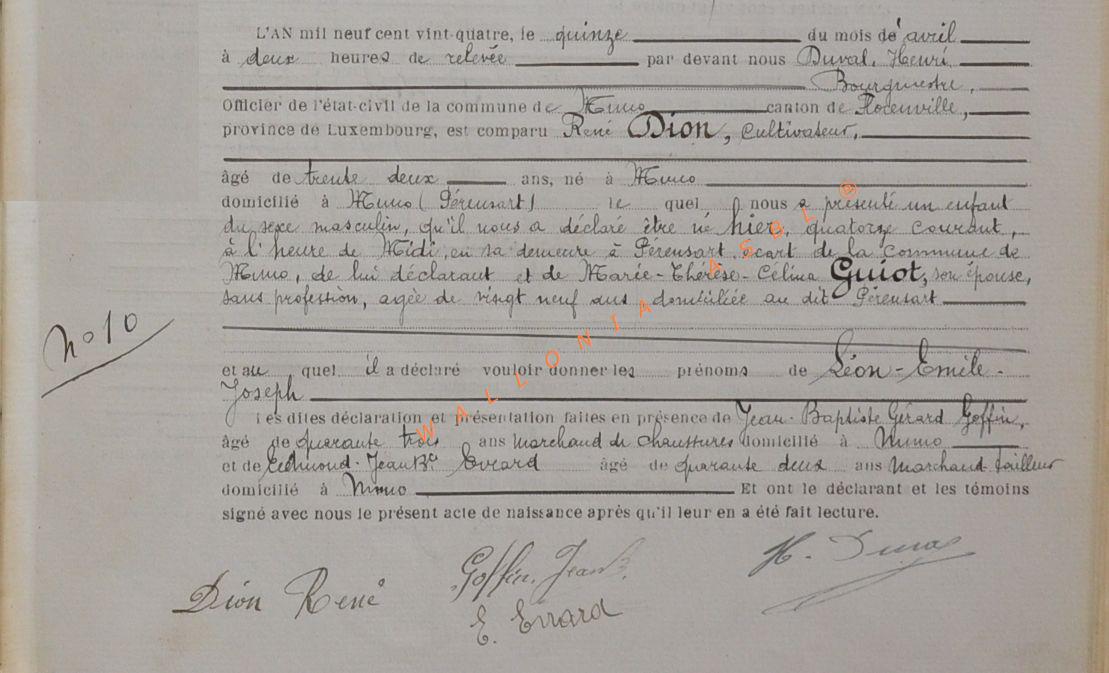 L'AN mil neuf cent vint-quatre, le quinze du mois de avril
à deux heures de relevée par devant nous Duval, Henri
Bourgmestre,
Officier de l'état-civil de la commune de Muno canton de Florenville,
province de Luxembourg, est comparu René Dion, Cultivateur,
âgé de trente deux ans, né à Muno
domicilié à Muno (Pérensart) le quel nous a présenté un enfant
du sexe masculin, qu'il nous a déclaré être né hier, quatorze courant,
à l'heure de Midi, en sa demeure à Pérensart, écart de la Commune de
Muno, de lui déclarant et de Marie-Thérèse-Célina Guiot, son épouse,
sans profession, agée de vingt neuf ans domiciliée au dit Pérensart
et au quel il a déclaré vouloir donner les prénoms de Léon-Emile-
Joseph
Les dites déclaration et présentation faites en présence de Jean-Baptiste Gérard Goffin,
âgé de quarante trois ans Marchand de chaussures domicilié à Muno
et de Edmond-Jean Bte Evrard âgé de quarante deux ans Marchand-tailleur
domicilié à Muno Et ont le déclarant et les témoins
signé avec nous le présent acte de naissance après qu'il leur en a été fait lecture.
N° 10
Dion René
Goffin, Jean B.
E. Evrard
H. Duval
WALLONIA ASBL ®